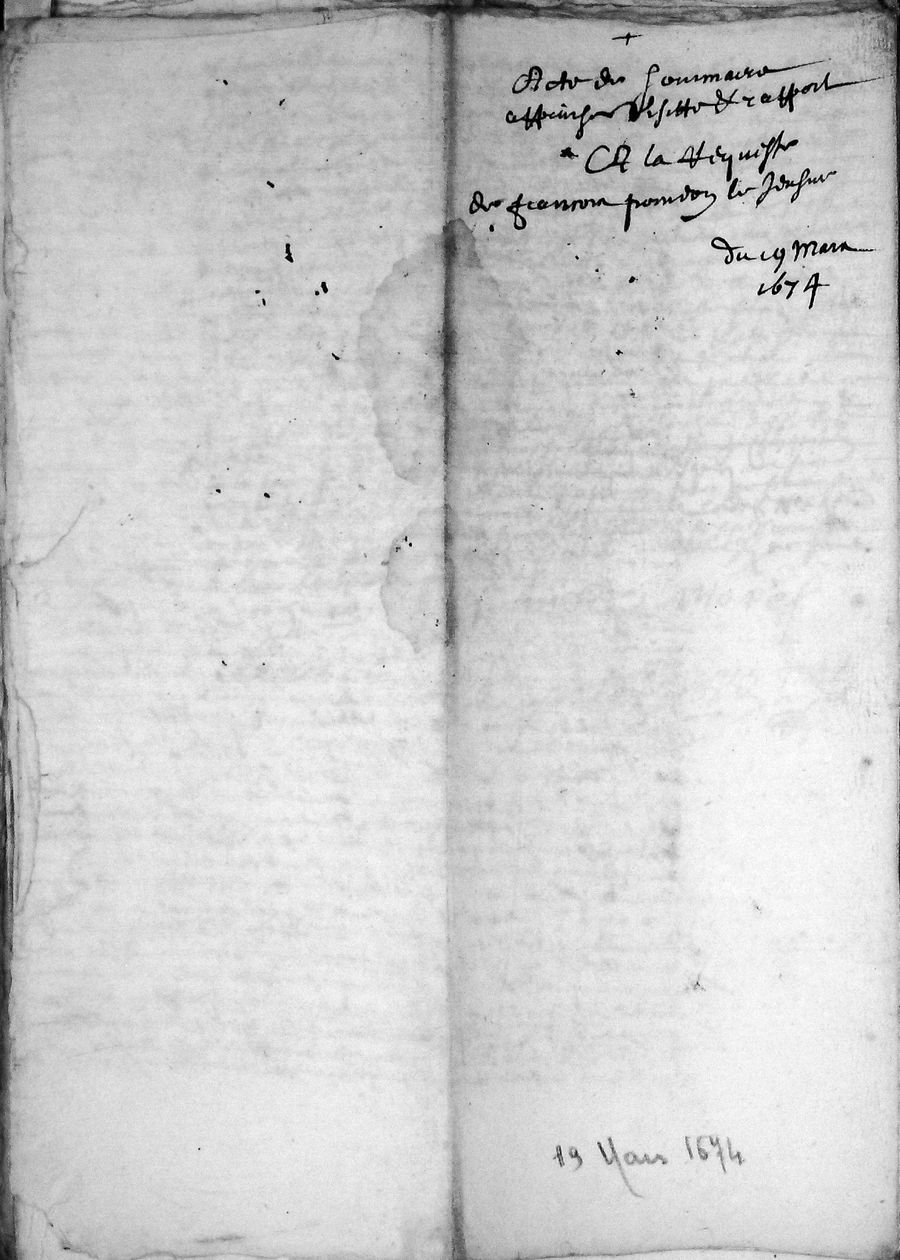 +
Acte de sommaire
apprise visitte et rapport
A la Requeste
de francois pomdor le Jeusne
du 19 Mars
1674
19 Mars 1674